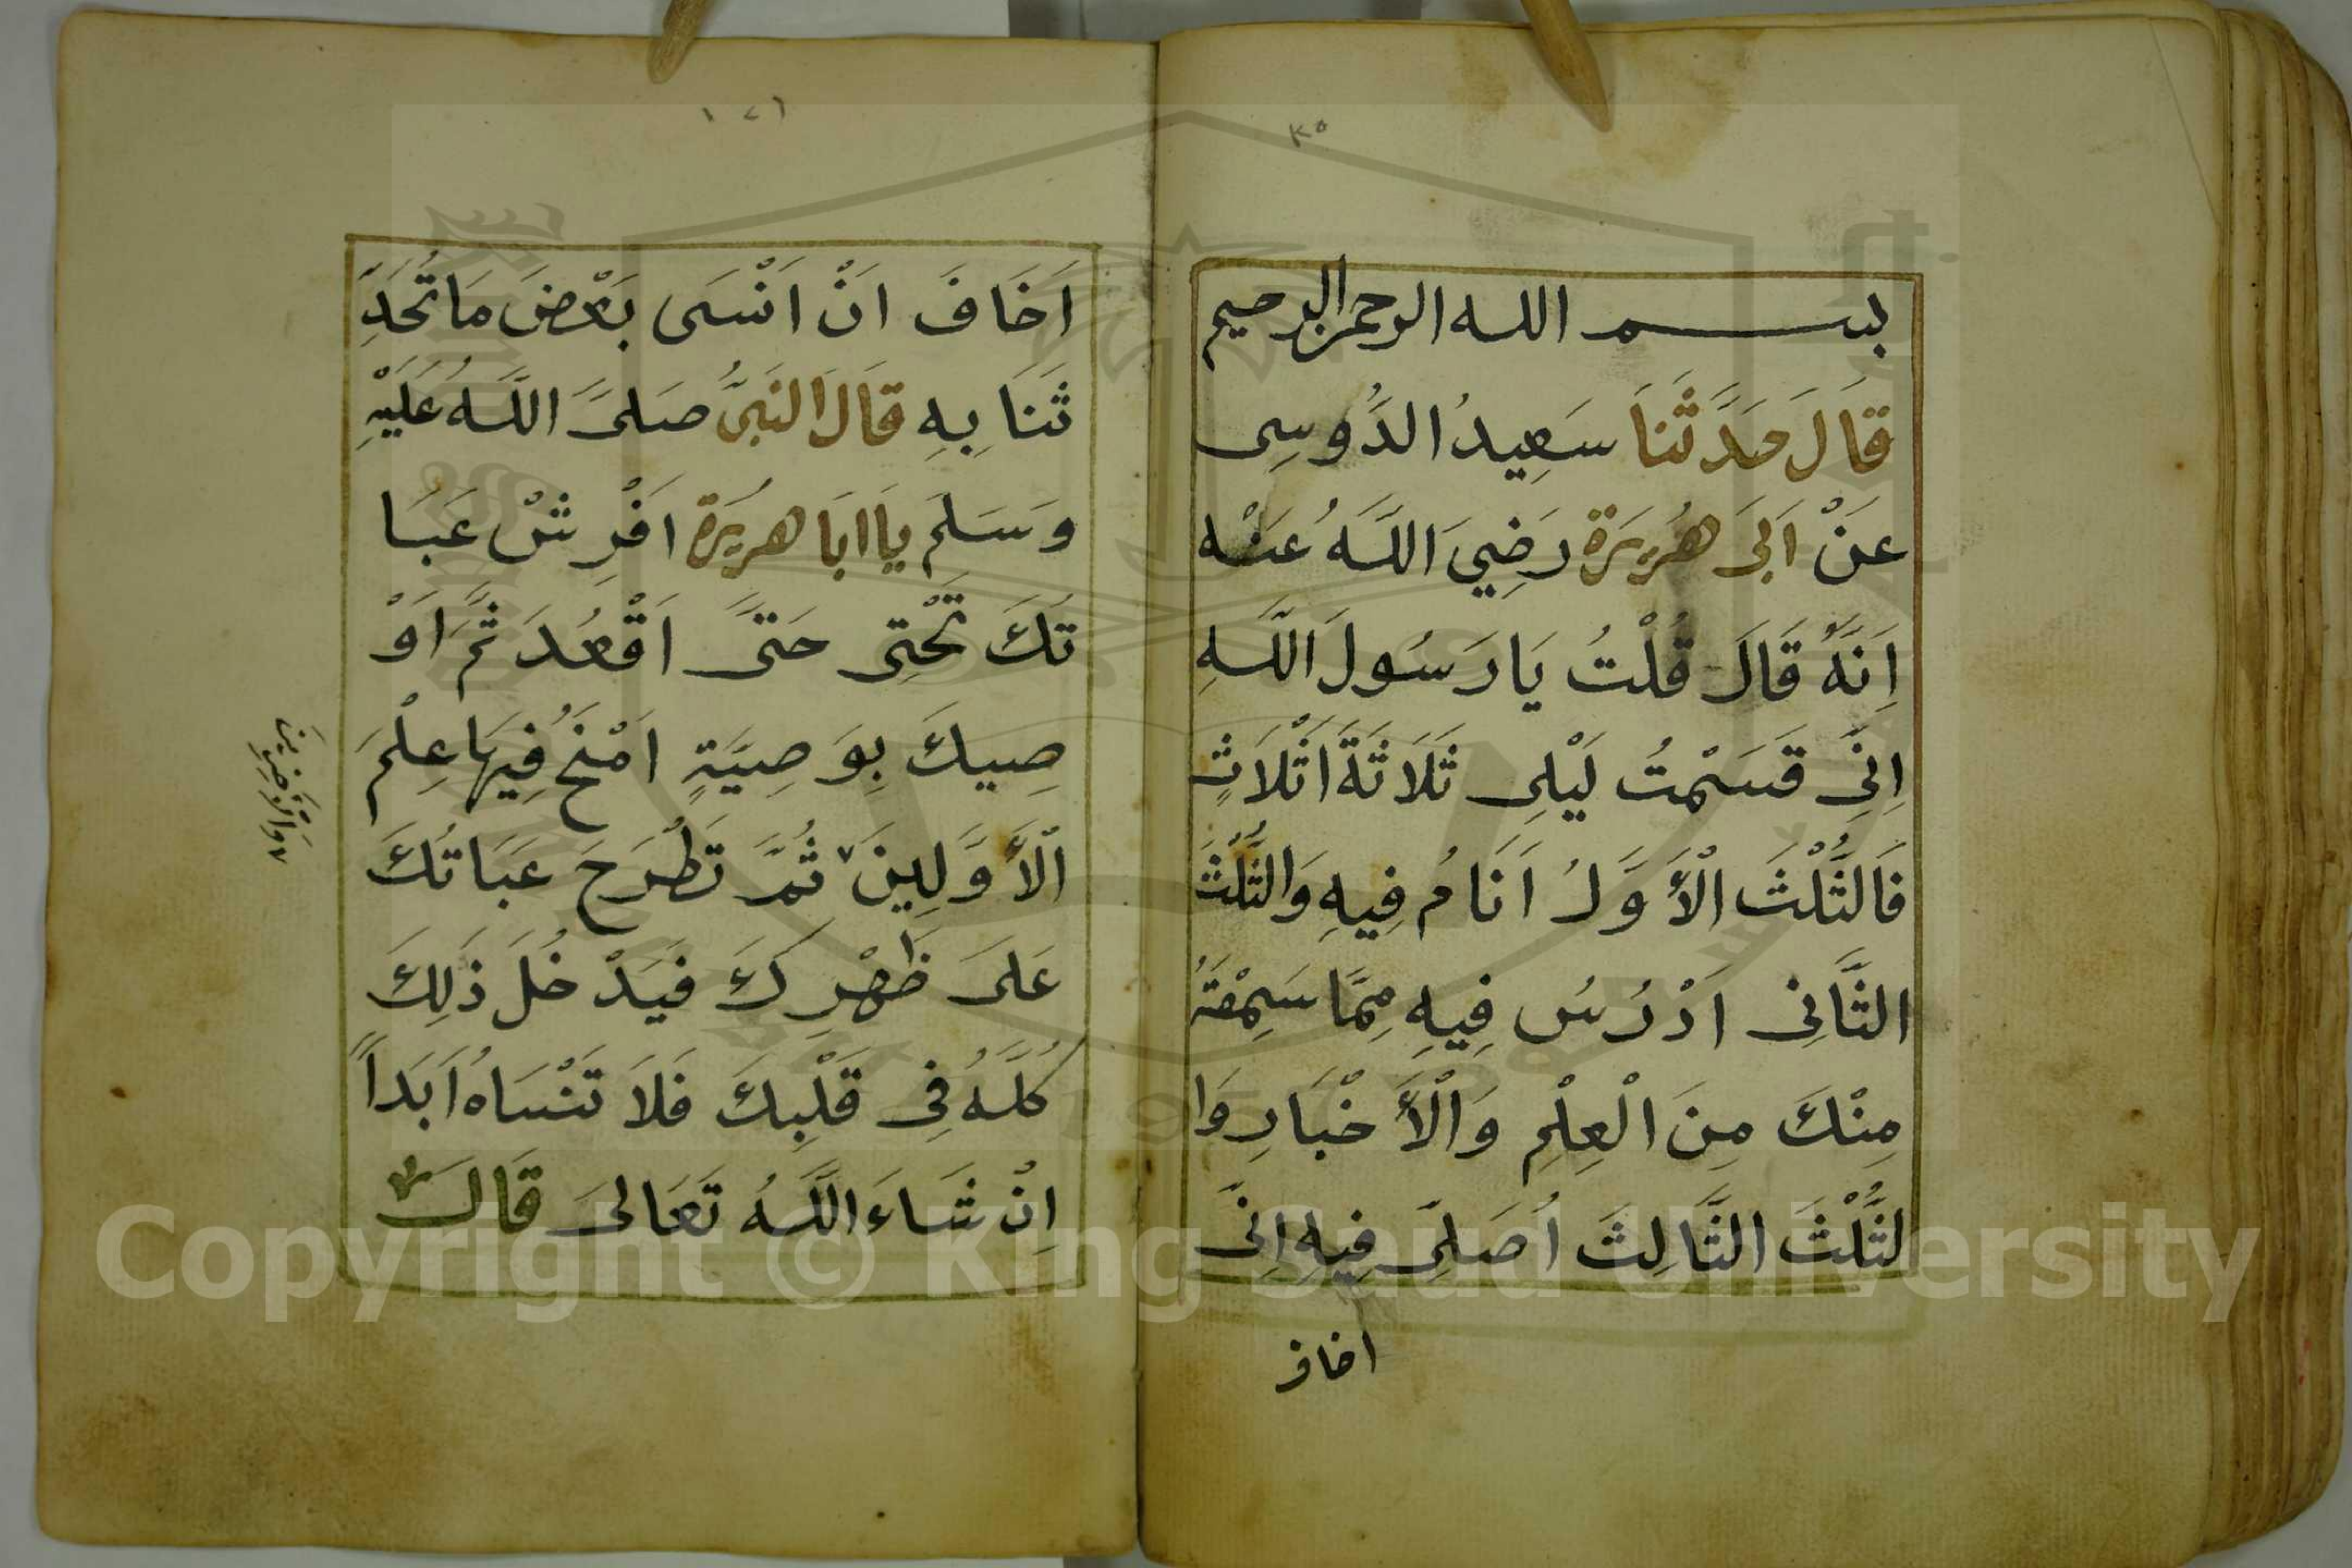 ٣٥
بسم الله الرحمن الرحيم
قَالَ حَدَّثَنَا سَعِيدُ الدَّوُسِى
عَنْ اَبَى هُرَيْرَة رَضِيَ اللَّهُ عَنْه
اِنَّهُ قَالَ قُلْتُ يَا رَسُولَ اللَّهِ
اِنِّى قَسَمْتُ لَيْلِى ثَلَاثَةَ اَثْلَاثٍ
فَالثُّلْثَ الْأَوَّلُ اَنَامُ فِيهِ وَالثُّلْثَ
الثَّانِى اَدْرُسُ فِيهِ مِمَّا سَمِعْتَهُ
مِنْكَ مِنَ الْعِلْمِ وَالْأَخْبَارِ وَا
لثُّلْثَ الثَّالِثَ اُصَلِّى فِيهِ اِنِّى
اخاف
١٧٦
اَخَافَ اَنْ اَنْسَى بَعْضَ مَا تُحَدِّ
ثَنَا بِهِ قَالَ النَبىُّ صَلىَّ اللَّهُ عَلَيْهِ
وَسَلمَ يَا اَبَا هُرَيْرَة اَفْرِشْ عَبَا
تَكَ تَحْتِى حَتىَّ اَقْعُدَ ثُمَّ اَوْ
صِيكَ بِوَصِيَّةٍ اَمْنَحُ فِيهَا عِلْمَ
الْأَوَّلِينَ ثُمَّ تَطْرَحَ عَبَاتُكَ
عَلىَ ظَهْرِكَ فَيَدْخُلَ ذَلِكَ
كُلَّهُ فِى قَلْبِكَ فَلاَ تَنْسَاهُ اَبَداً
اِنْ شَاءَ اللَّهُ تَعَالىَ قَالَ
وَالآخِرِينَ
Copyright © King Saud University